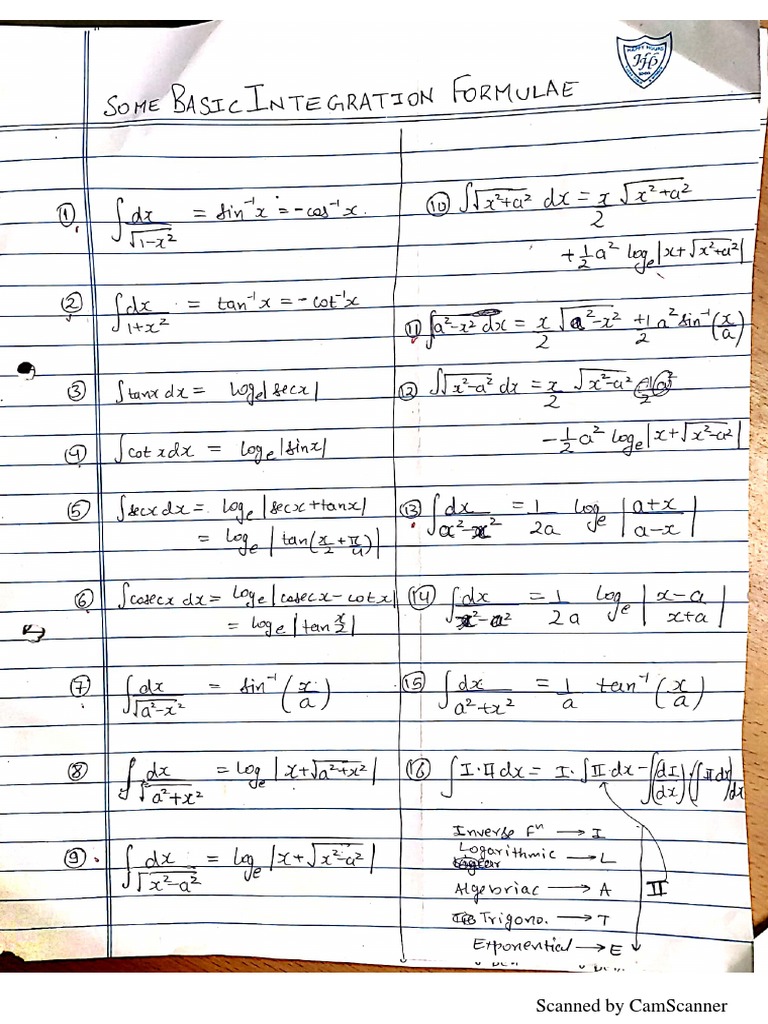 SOME BASIC INTEGRATION FORMULAE
① ∫dx/√(1-x²) = sin⁻¹x = -cos⁻¹x.
② ∫dx/(1+x²) = tan⁻¹x = -cot⁻¹x
③ ∫tanx dx = logₑ|secx|
④ ∫cotxdx = logₑ|sinx|
⑤ ∫secx dx = logₑ|secx+tanx|
= logₑ|tan(x/2+π/4)|
⑥ ∫cosecx dx = logₑ|cosecx-cotx|
= logₑ|tan x/2|
⑦ ∫dx/√(a²-x²) = sin⁻¹(x/a)
⑧ ∫dx/√(a²+x²) = logₑ|x+√(a²+x²)|
⑨ ∫dx/√(x²-a²) = logₑ|x+√(x²-a²)|
⑩ ∫√(x²+a²) dx = x/2 √(x²+a²)
+1/2 a² logₑ|x+√(x²+a²)|
⑪ ∫√(a²-x²) dx = x/2 √(a²-x²) +1/2 a² sin⁻¹(x/a)
⑫ ∫√(x²-a²) dx = x/2 √(x²-a²)
-1/2 a² logₑ|x+√(x²-a²)|
⑬ ∫dx/(a²-x²) = 1/2a logₑ|(a+x)/(a-x)|
⑭ ∫dx/(x²-a²) = 1/2a logₑ|(x-a)/(x+a)|
⑮ ∫dx/(a²+x²) = 1/a tan⁻¹(x/a)
⑯ ∫I·II dx = I·∫II dx - ∫(dI/dx)·(∫II dx)dx
Inverse Fⁿ → I
Logarithmic → L
Algebriac → A
II
Trigono. → T
Exponential → E
Scanned by CamScanner